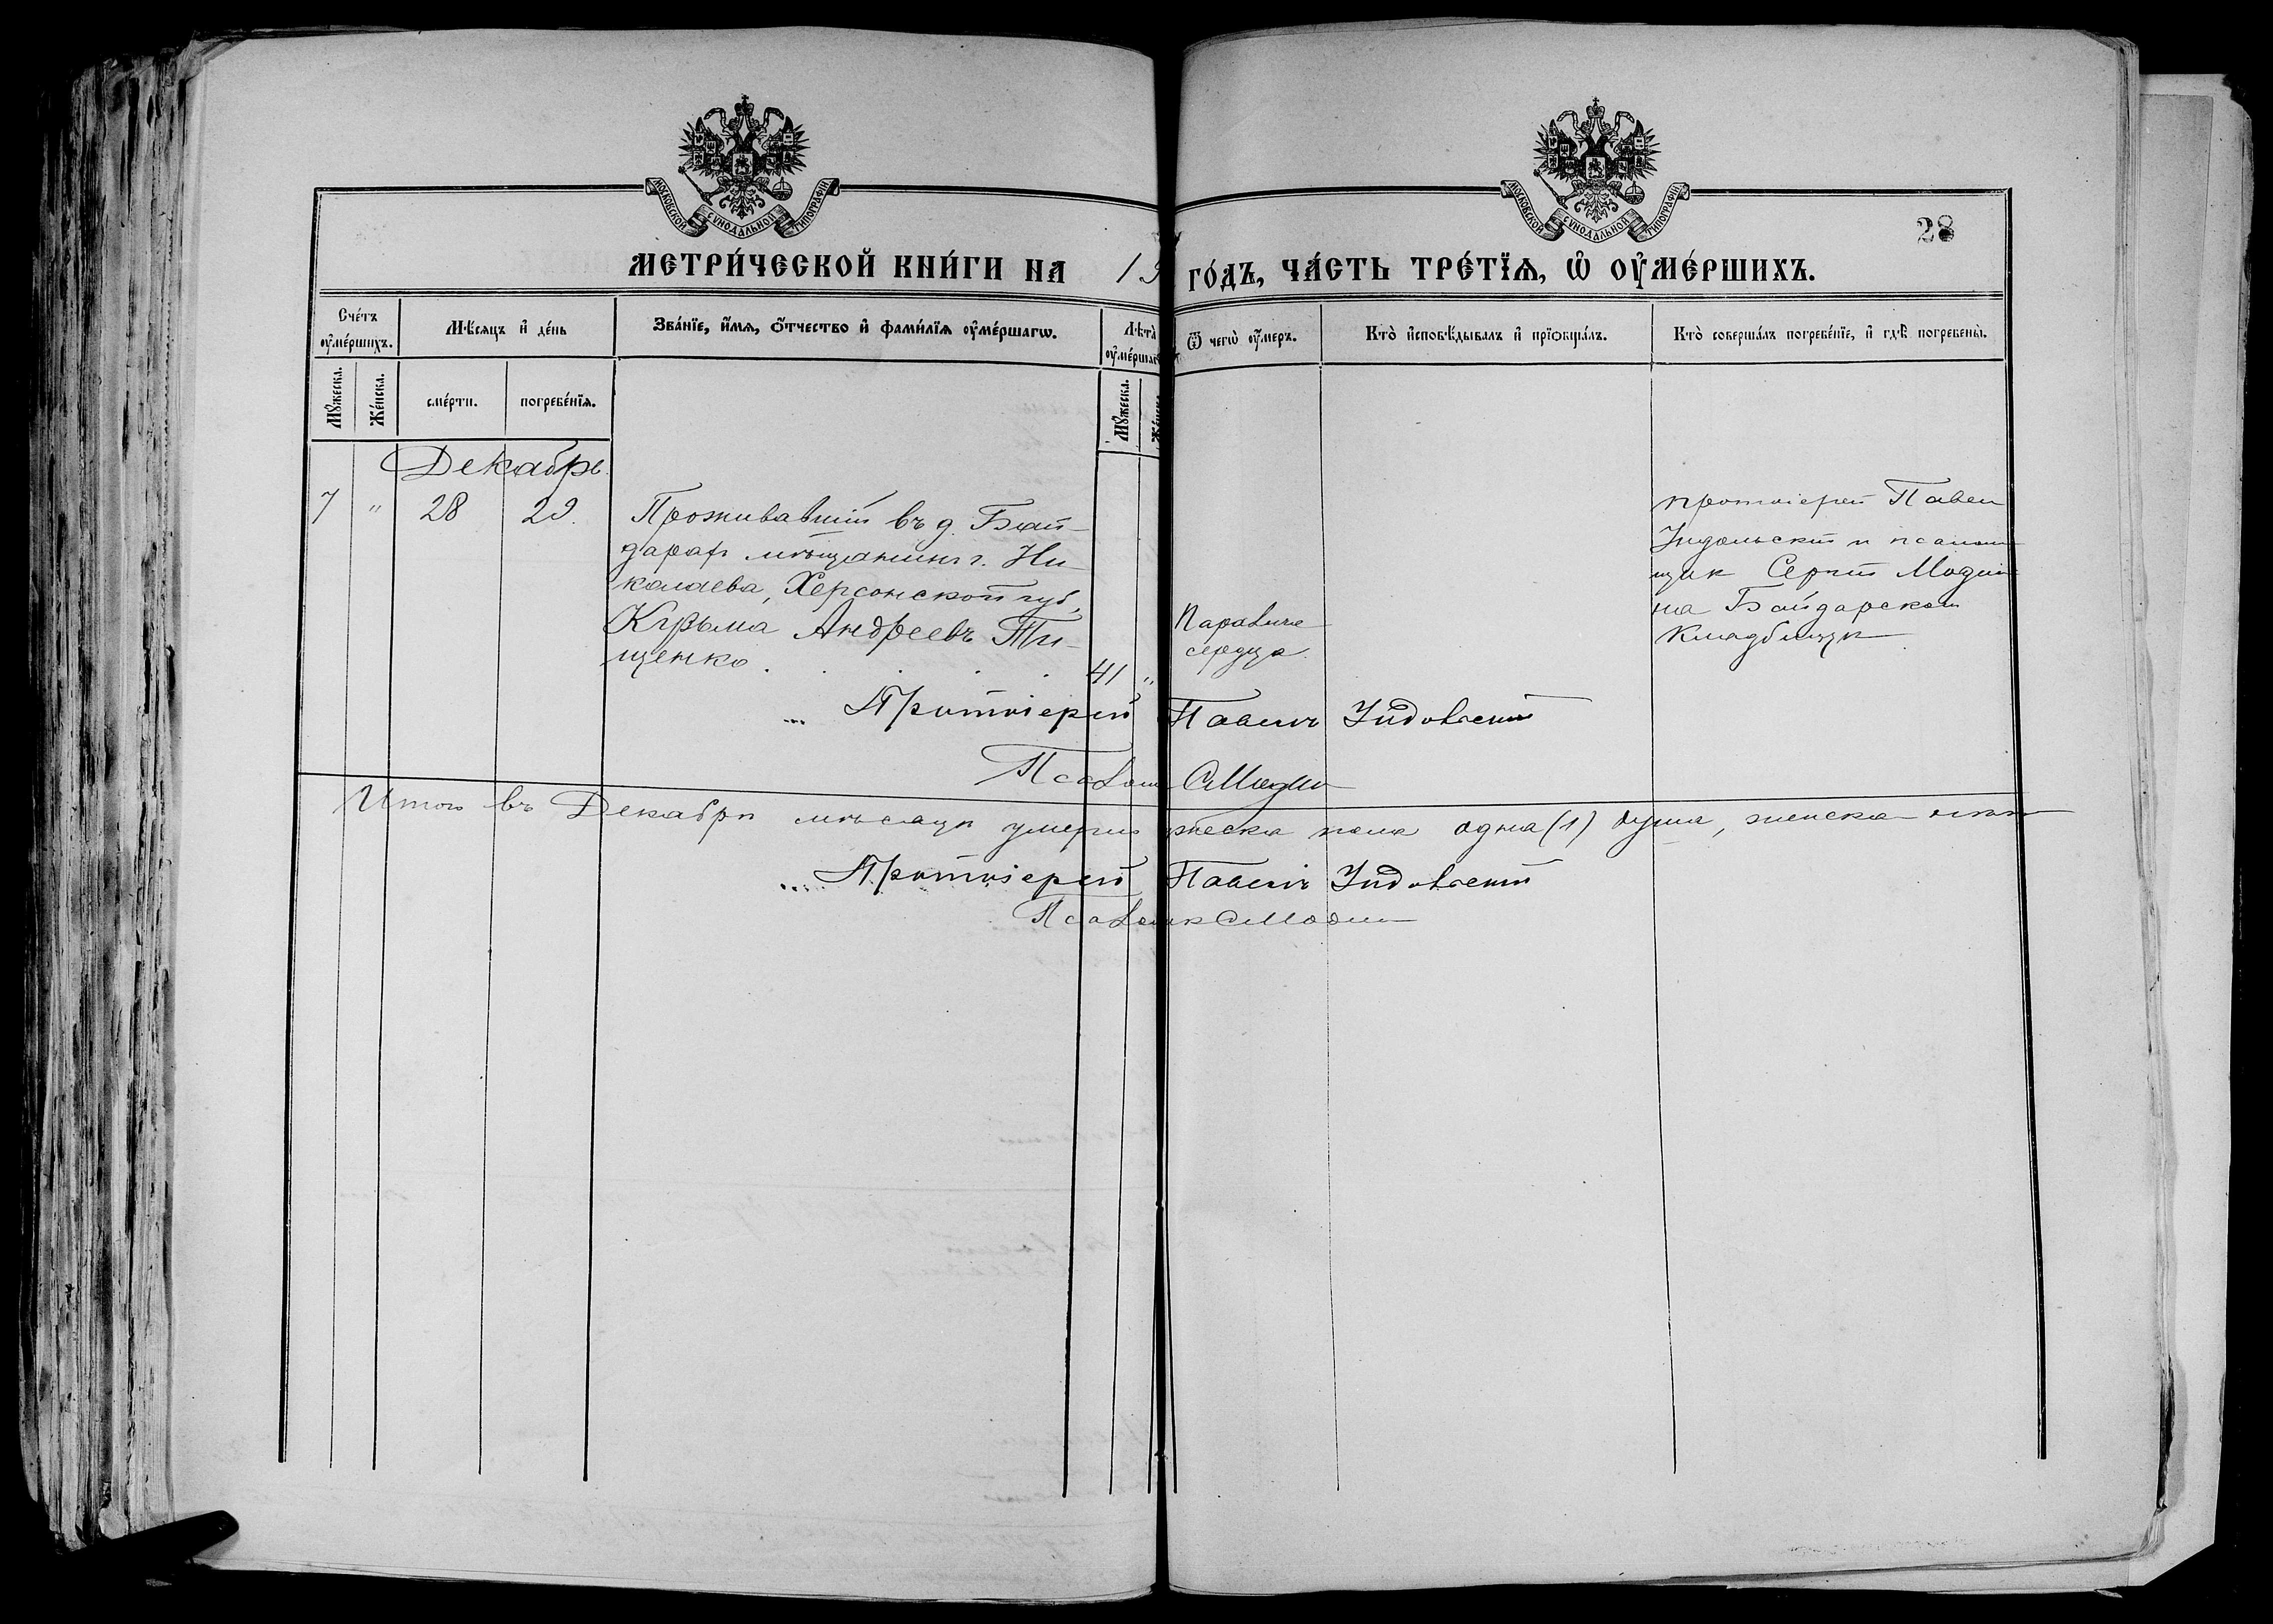 МОСКОВСКОЙ СѴНОДАЛЬНОЙ ТИПОГРАФІИ
МОСКОВСКОЙ СѴНОДАЛЬНОЙ ТИПОГРАФІИ
28
МЕТРИ́ЧЕСКОЙ КНИ́ГИ НА 19
ГО́ДЪ, ЧА́СТЬ ТРЕ́ТЇѦ, Ѡ҆ ОУ҆МЕ́РШИХЪ.
Сче́тъ оу҆ме́ршихъ.
Мѣ́сяцъ и҆ де́нь
Зва́нїе, и҆́мѧ, ѻ҆́тчество и҆ фами́лїѧ оу҆ме́ршагѡ.
Лѣ́та оу҆ме́ршаг
Ѿ чегѡ̀ оу҆́меръ.
Кто̀ и҆сповѣ́дывалъ и҆ прїѻбща́лъ.
Кто̀ соверша́лъ погребе́нїе, и҆ гдѣ̀ погребены̀.
Мꙋ́жеска.
Же́нска.
сме́рти.
погребе́нїѧ.
Мꙋ́жеска.
Же́нска
Декабрь.
7 " 28 29.
Проживавшій въ д. Бай-
дарах мѣщанинъ г. Ни-
колаева, Херсонской губ,
Кузьма Андреевъ Ти-
щенко.
41 "
Параличъ
сердца.
протоіерей Павел
Индольскій и псалом
щик Сергій Модин
на Байдарском
кладбищѣ
Протоіерей Павелъ Индольскій
Псалом С Модин
Итого въ Декабрѣ мѣсяцѣ умерло жеска пола одна (1) душа, женска
Протоіерей Павелъ Индольскій
Псаломк С Модин